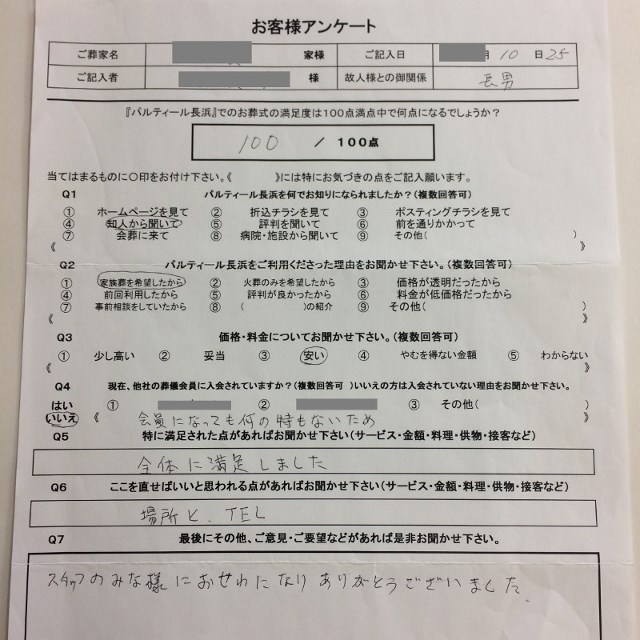 お客様アンケート
ご葬家名 家様 ご記入日 月 10 日 25
ご記入者 様 故人様との御関係 長男
『パルティール長浜』でのお葬式の満足度は100点満点中で何点になるでしょうか?
100 / 100点
当てはまるものに〇印をお付け下さい。《 》には特にお気づきの点をご記入願います。
Q1 パルティール長浜を何でお知りになられましたか?(複数回答可)
① ホームページを見て ② 折込チラシを見て ③ ポスティングチラシを見て
④ 知人から聞いて ⑤ 評判を聞いて ⑥ 前を通りかかって
⑦ 会葬に来て ⑧ 病院・施設から聞いて ⑨ その他( )
《 》
Q2 パルティール長浜をご利用くださった理由をお聞かせ下さい。(複数回答可)
① 家族葬を希望したから ② 火葬のみを希望したから ③ 価格が透明だったから
④ 前回利用したから ⑤ 評判が良かったから ⑥ 料金が低価格だったから
⑦ 事前相談をしていたから ⑧ ( )の紹介 ⑨ その他( )
《 》
Q3 価格・料金についてお聞かせ下さい。(複数回答可)
① 少し高い ② 妥当 ③ 安い ④ やむを得ない金額 ⑤ わからない
《 》
Q4 現在、他社の葬儀会員に入会されていますか?(複数回答可 )いいえの方は入会されていない理由をお聞かせ下さい。
はい ① ② ③ その他( )
いいえ 《 会員になっても何の特もないため 》
Q5 特に満足された点があればお聞かせ下さい(サービス・金額・料理・供物・接客など)
全体に満足しました
Q6 ここを直せばいいと思われる点があればお聞かせ下さい(サービス・金額・料理・供物・接客など)
場所と、TEL
Q7 最後にその他、ご意見・ご要望などがあれば是非お聞かせ下さい。
スタッフのみな様におせわになりありがとうございました。